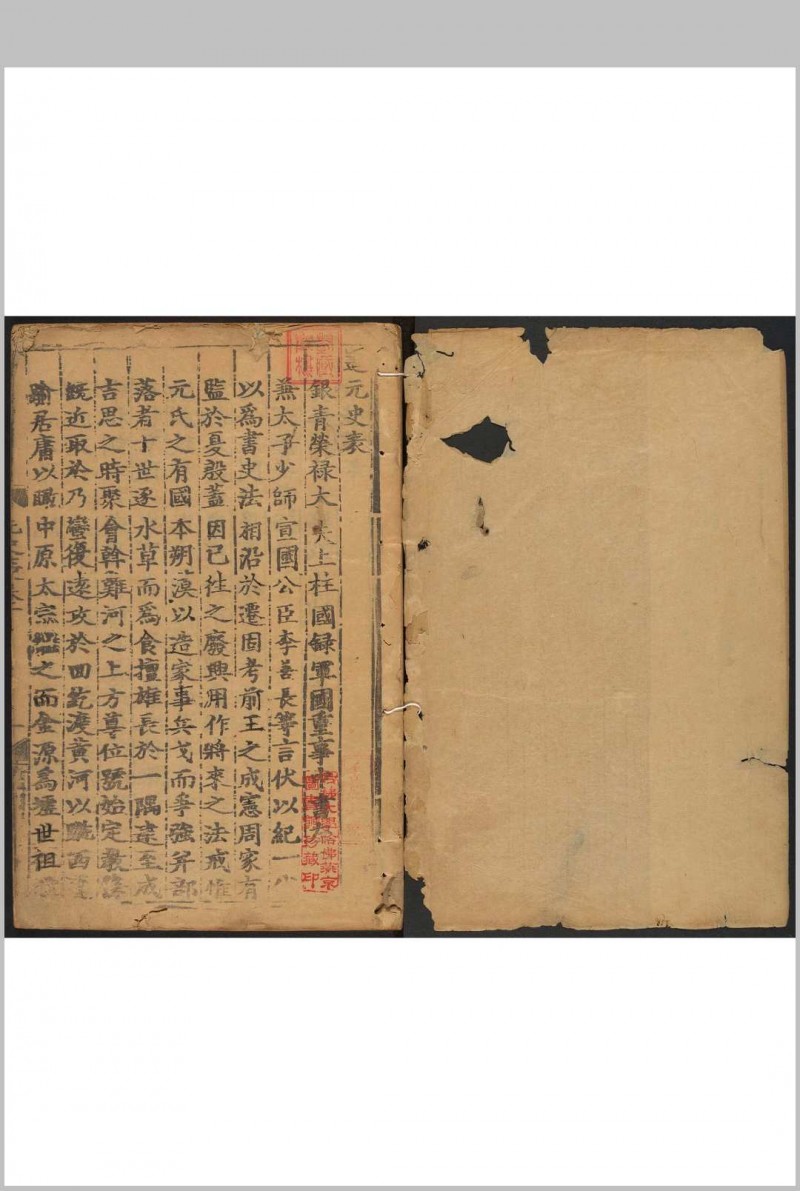 元史表
銀青榮祿大夫上柱國録軍國重事中書左
兼太子少師宣國公臣李善長等言伏以紀一代
以爲書史法相沿於遷固考前王之成憲周家有
監於夏殷蓋因已往之廢興用作將來之法戒惟
元氏之有國本朔漠以造家事兵戈而爭強并部
落者十世逐水草而爲食擅雄長於一隅逮至成
吉思之時聚會斡難河之上方尊位號始定敎條
旣近取於乃蠻復遠攻於回紇渡黄河以蹴西夏
踰居庸以瞰中原太宗繼之而金源爲墟世祖
珍藏印